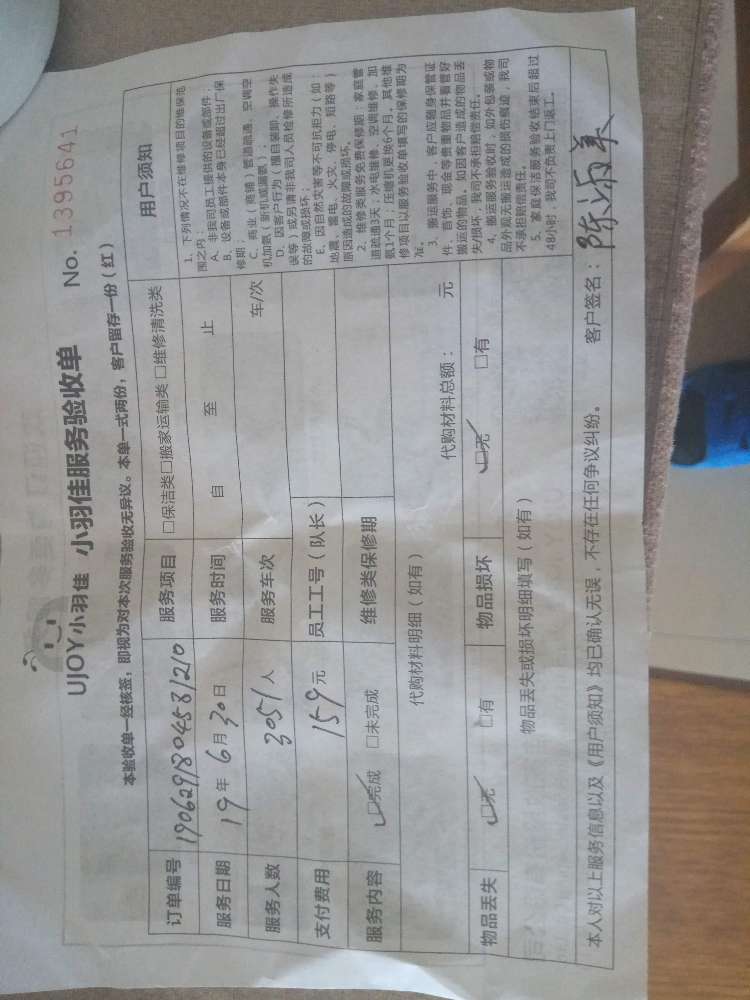 UJOY小羽佳 小羽佳服务验收单 No. 1395641
本验收单一经核签，即视为对本次服务验收无异议。本单一式两份，客户留存一份（红）
订单编号 190629180458 1210 服务项目 □保洁类□搬家运输类□维修清洗类
服务日期 19年6月30日 服务时间 自 至 止
服务人数 3051人 服务车次 车/次
支付费用 159元 员工工号（队长）
服务内容 □完成 □未完成 维修类保修期
代购材料明细（如有） 代购材料总额： 元
物品丢失 □无 □有 物品损坏 □无 □有
物品丢失或损坏明细填写（如有）
用户须知
1、下列情况不在维修项目的维保范
围之内：
A、非我司员工提供的设备或部件；
B、设备或部件本身已经超过出厂保
修期；
C、商业（商铺）管道疏通、空调空
机加氨（新机或漏氨）；
D、因客户行为（擅自装卸、操作失
误等）或另请非我司人员检修所造成
的故障或损坏；
E、因自然灾害等不可抗拒力（如：
地震、雷电、火灾、停电、短路等）
原因造成的故障或损坏。
2、维修类服务免费保修期：家庭管
道疏通3天；水电维修、空调维修、加
氨1个月；压缩机更换6个月，其他维
修项目以服务验收单填写的保修期为
准。
3、搬运服务中，客户应随身保管证
件、首饰、现金等贵重物品并看管好
搬运的物品，如因客户造成的物品丢
失/损坏，我司不承担赔偿责任。
4、搬运服务验收时，如外包装或物
品外观无搬运造成的损伤痕迹，我司
不承担赔偿责任。
5、家庭保洁服务验收结束后超过
48小时，我司不负责上门返工。
本人对以上服务信息以及《用户须知》均已确认无误，不存在任何争议纠纷。 客户签名：陈淑美